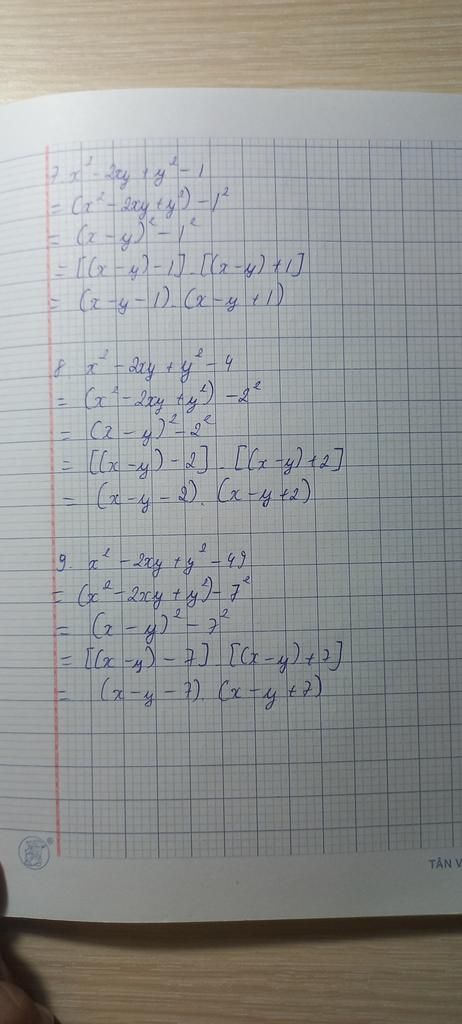 7. x² - 2xy + y² - 1
= (x² - 2xy + y²) - 1²
= (x - y)² - 1²
= [(x - y) - 1] . [(x - y) + 1]
= (x - y - 1) . (x - y + 1)
8. x² - 2xy + y² - 4
= (x² - 2xy + y²) - 2²
= (x - y)² - 2²
= [(x - y) - 2] . [(x - y) + 2]
= (x - y - 2) . (x - y + 2)
9. x² - 2xy + y² - 49
= (x² - 2xy + y²) - 7²
= (x - y)² - 7²
= [(x - y) - 7] . [(x - y) + 7]
= (x - y - 7) . (x - y + 7)
TÂN V